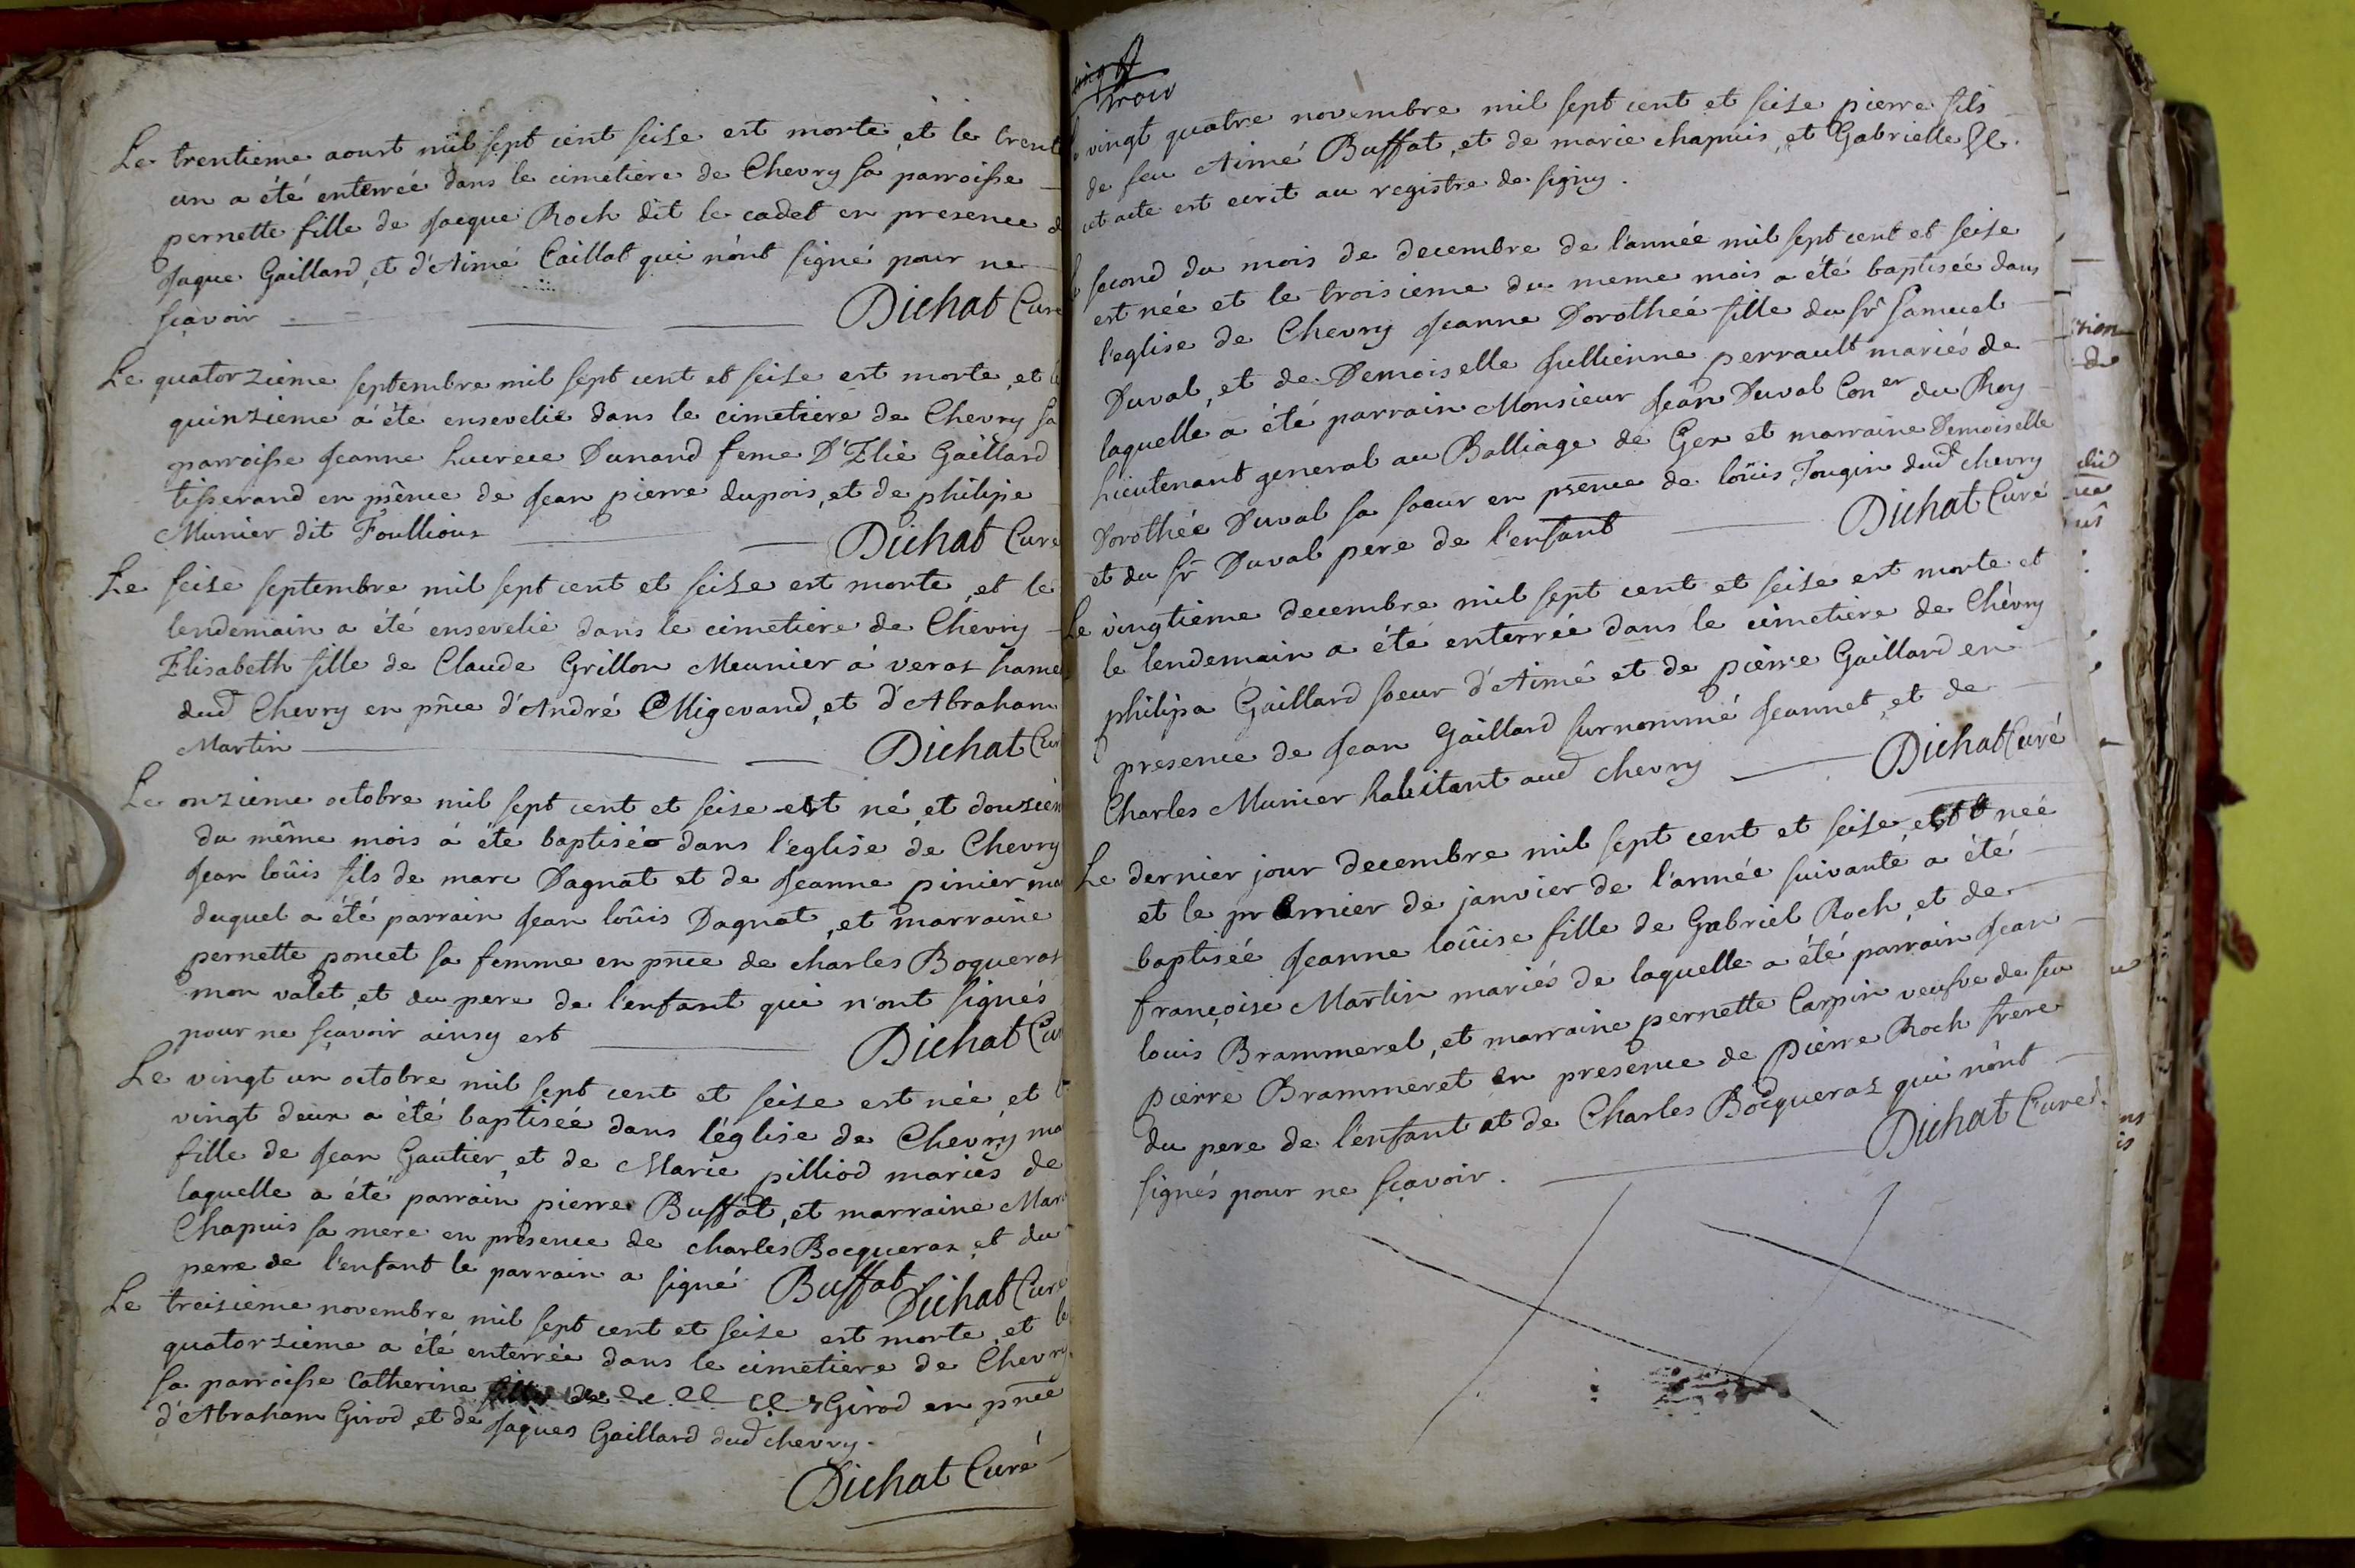 Le trentieme aoust mil sept cent seise est morte, et le trent
un a été enterrée dans le cimetiere de Chevry sa parroisse
pernette fille de Jacque Roch dit le cadet en presence d
Jaque Gaillard, et d'Aimé Caillat qui n'ont signé pour ne
sçavoir
Dichat Curé
Le quatorzieme septembre mil sept cent et seise est morte, et le
quinzieme a été ensevelie dans le cimetiere de Chevry sa
parroisse Jeanne Lucrece Dunand feme D'Elie Gaillard
tisserand en pñence de Jean pierre dupois, et de philipe
Munier dit Foullioux
Dichat Cure
Le seise septembre mil sept cent et seise est morte, et le
lendemain a été ensevelie dans le cimetiere de Chevry
Elisabeth fille de Claude Grillon Meunier a veraz hame
dud Chevry en pñce d'André Migevand, et d'Abraham
Martin
Dichat Cur
Le onzieme octobre mil sept cent et seise est né, et douziem
du même mois a été baptisé dans l'eglise de Chevry
Jean loüis fils de marc Dagnat et de Jeanne pinier ma
duquel a été parrain Jean loüis Dagnat, et marraine
pernette poncet sa femme en pñce de charles Boqueras
mon valet, et du pere de l'enfant qui n'ont signés
pour ne sçavoir ainsy est
Dichat Cu
Le vingt un octobre mil sept cent et seise est née, et l
vingt deux a été baptisée dans l'église de Chevry ma
fille de Jean Gautier, et de Marie pilliod mariés de
laquelle a été parrain pierre Buffat, et marraine Mar
Chapuis sa mere en presence de charles Bocqueraz et du
pere de l'enfant le parrain a signé Buffat
Dichat Curé
Le treizieme novembre mil sept cent et seise est morte, et le
quatorzieme a été enterrée dans le cimetiere de Chevry
sa parroisse Catherine Girod en pñce
d'Abraham Girod, et de Jaques Gaillard dud chevry.
Dichat Curé
trois
vingt quatre novembre mil sept cent et seise pierre fils
de feu Aimé Buffat, et de marie chapuis, et Gabrielle &c.
cet acte est ecrit au registre de signy.
second du mois de decembre de l'année mil sept cent et seise
est née et le troisieme du meme mois a été baptisée dans
l'eglise de Chevry Jeanne Dorothée fille du sr Samuel
Duval, et de Demoiselle Jullienne perrault mariés de
laquelle a été parrain Monsieur Jean Duval Coner du Roy
Lieutenant general au Balliage de Gex et marraine Demoiselle
Dorothée Duval sa soeur en pñence de loüis Fougin dud chevry
et du sr Duval pere de l'enfant
Dichat Curé
Le vingtieme decembre mil sept cent et seise est morte et
le lendemain a été enterrée dans le cimetiere de Chevry
philipa Gaillard soeur d'Aimé et de pierre Gaillard en
presence de Jean Gaillard surnommé Jeannet, et de
Charles Munier habitant aud chevry
Dichat Curé
Le dernier jour decembre mil sept cent et seise est née
et le premier de janvier de l'année suivante a été
baptisée Jeanne loüise fille de Gabriel Roch, et de
françoise Martin mariés de laquelle a été parrain Jean
louis Brammerel, et marraine pernette Carpin veufve de feu
pierre Brammeret en presence de Pierre Roch frere
du pere de l'enfant et de Charles Bocqueraz qui n'ont
signés pour ne sçavoir.
Dichat Curé